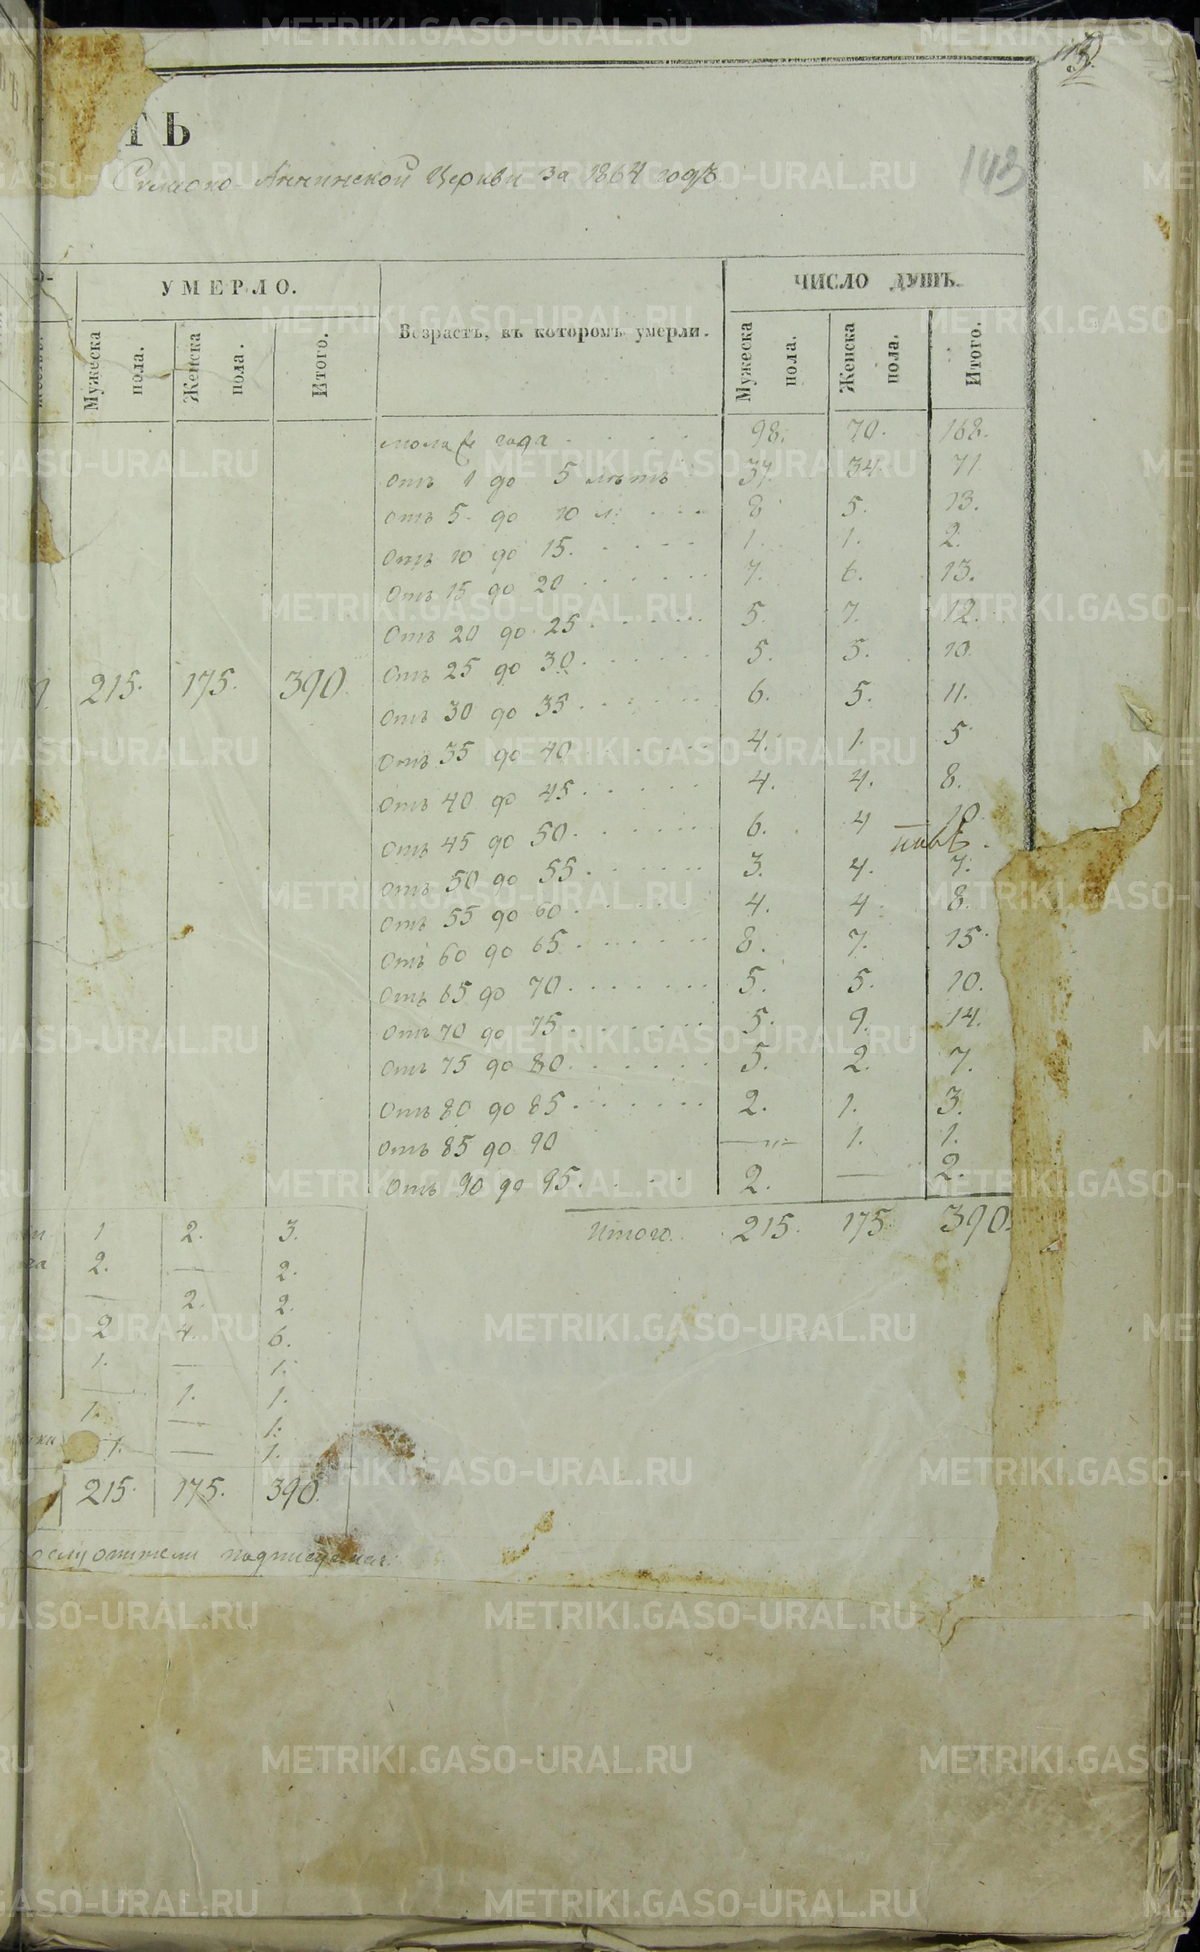 113.
ТЬ
143
Симеоно-Аннинской Церкви за 1864 годъ.
УМЕРЛО.
ЧИСЛО ДУШЪ.
Мужеска пола.
Женска пола.
Итого.
Возрастъ, въ которомъ умерли.
Мужеска пола.
Женска пола.
Итого.
года 98. 70. 168.
отъ 1 до 5 лѣтъ 37. 34. 71
отъ 5 до 10 л: 8 5. 13.
отъ 10 до 15. 1. 1. 2.
отъ 15 до 20 7. 6. 13.
отъ 20 до 25 5. 7. 12.
отъ 25 до 30 5. 5. 10.
215. 175. 390.
отъ 30 до 35 6. 5. 11.
отъ 35 до 40 4. 1. 5
отъ 40 до 45 4. 4. 8.
отъ 45 до 50 6. 4 10
отъ 50 до 55 3. 4. 7.
отъ 55 до 60 4. 4 8.
отъ 60 до 65 8. 7. 15
отъ 65 до 70 5. 5. 10.
отъ 70 до 75 5. 9. 14.
отъ 75 до 80 5. 2. 7.
отъ 80 до 85 2. 1. 3.
отъ 85 до 90 — 1. 1.
отъ 90 до 95 2. — 2.
Итого. 215. 175 390.
1 2. 3.
2. — 2.
— 2. 2.
2 4. 6.
1. — 1.
— 1. 1.
1. — 1.
1. — 1.
215. 175. 390.
METRIKI.GASO-URAL.RU